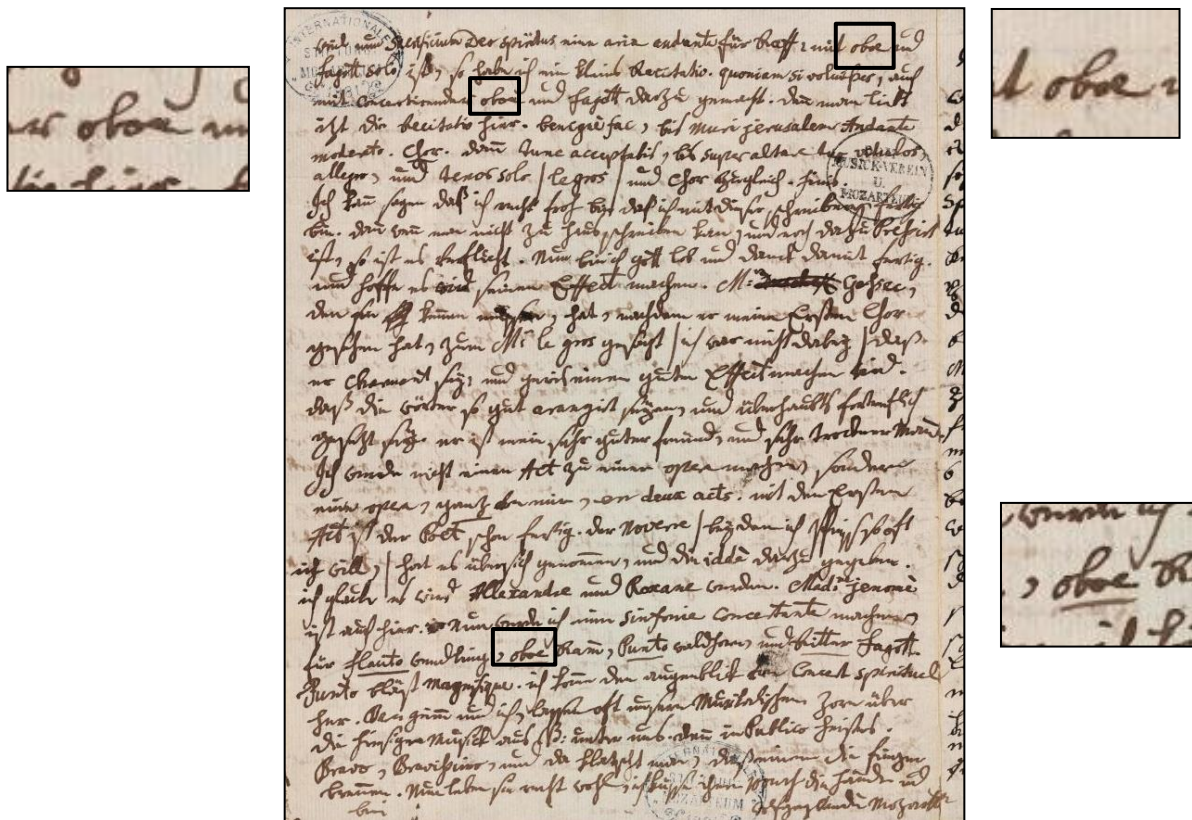 und zum Sacrificium Deo spiritus eine aria andante für Raff, mit oboe und
fagott solo ist, so habe ich ein kleines Recitativ. quoniam si voluisses, auch
mit concertirender oboe und fagott darzu gemacht. denn man liebt
izt die Recitativ hier. benigne fac, bis muri jerusalem Andante
moderato. Chor. dann tunc acceptabis, bis super altare tuum vitulos,
allegro, und tenor solo / le gros / und Chor zugleich. finis.
Ich kan sagen daß ich recht froh bin daß ich mit dieser schreiberey fertig
bin. dan wen man nicht zu haus schreiben kan, und noch dazu Pressirt
ist, so ist es verflucht. Nun bin ich gott lob und danck damit fertig.
und hoffe es wird seinen Effect machen. Mr: Gossec,
den sie kennen müssen, hat, nachdem er meinen Ersten Chor
gesehen hat, zum Mr: le gros gesagt / ich war nicht dabey / daß
er Charmant sey, und gewis einen guten Effect machen wird.
daß die wörter so gut arangirt seyen, und überhaubts fortreflich
gesezt sey. er ist mein sehr guter freünd, und sehr trockner Mann.
Ich werde nicht einen Act zu einer opera machen, sondern
eine opera, ganz von mir, en deux acts. mit den Ersten
Act ist der Poet schon fertig. der Noverre / bey dem ich speise so oft
ich will, / hat es über sich genommen, und die idèe dazu gegeben.
ich glaube es wird Alexandre und Roxane werden. Mad:me jenomè
ist auch hier. Nun werde ich eine sinfonie concertante machen,
für flauto wendling, oboe Ramm, Punto waldhorn, und Ritter Fagott.
Punto bläst Magnifique. ich komme den augenblick vom Concert spirituel
her. Bar: grimm und ich, lassen oft unsern Musikalischen Zorn über
die hiesige Musick aus, NB: unter uns. denn im Publico heist es:
Bravo, Bravissimo, und da klatscht man, daß einem die finger
brennen. Nun leben sie recht wohl, ich küsse ihnen 100mahl die hände und
bin
Wolfgang Amadè Mozart
INTERNATIONALE
STIFTUNG
MOZARTEUM
MUSICK-VEREIN
U.
MOZARTEUM
oboe
oboe
oboe